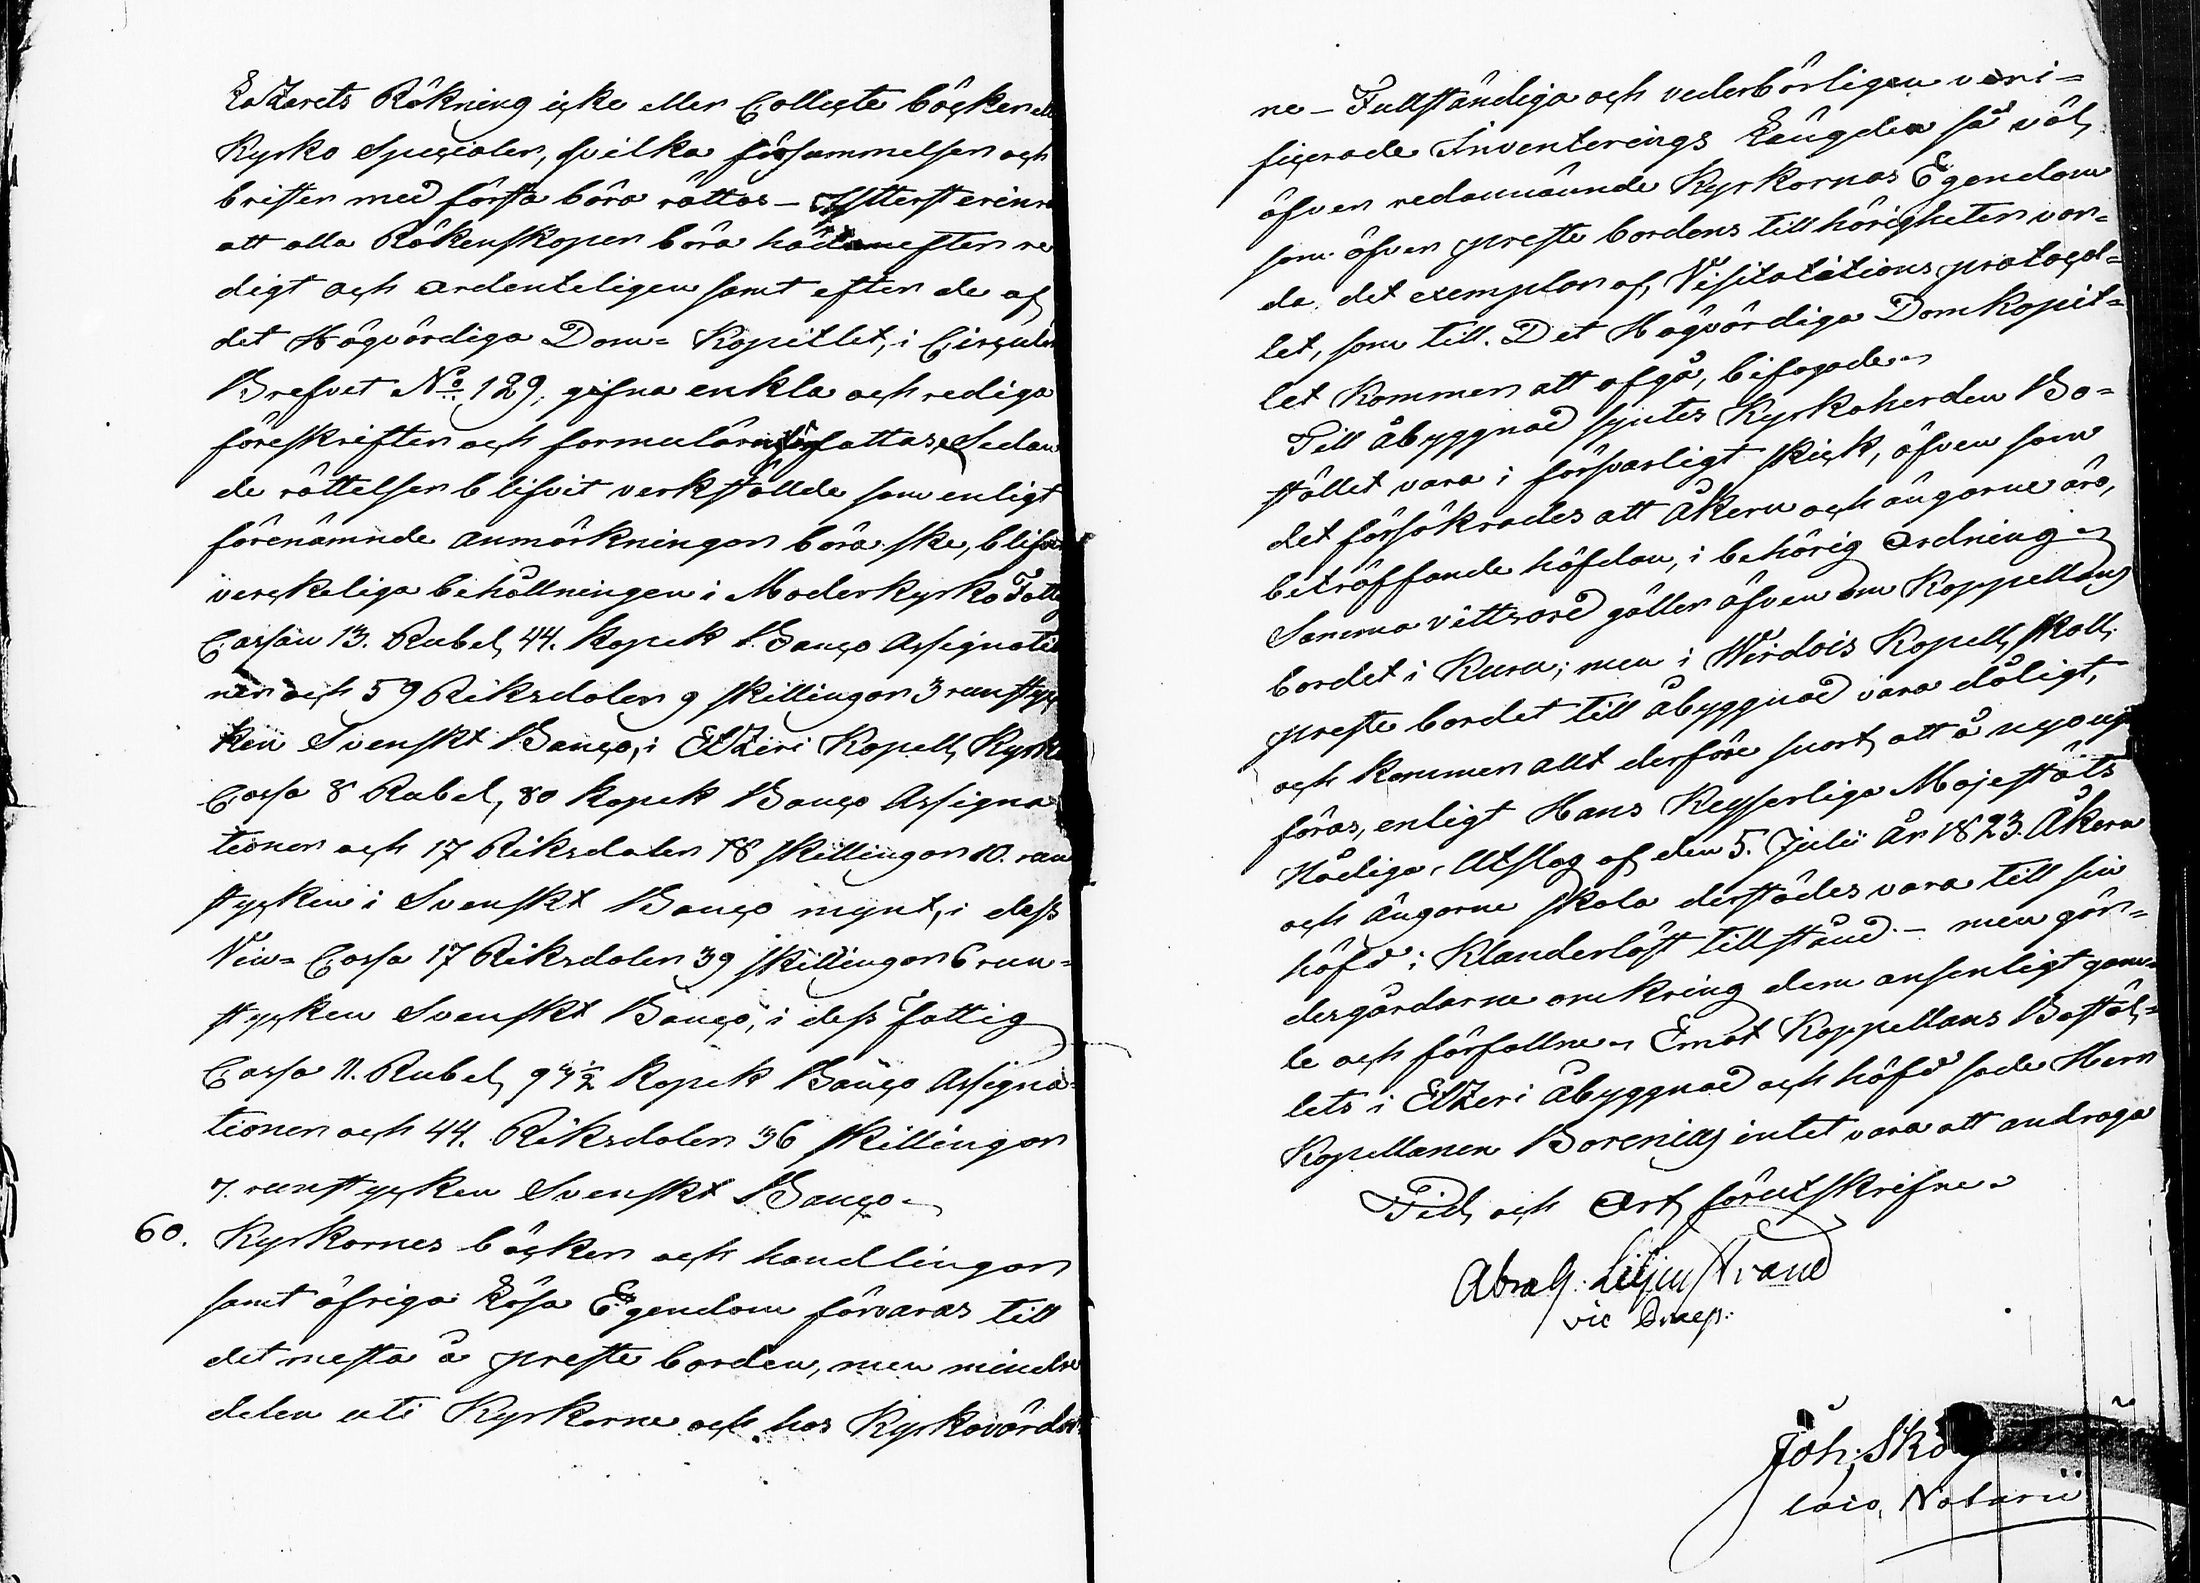 Lazarets Räkning icke eller Collecte böcker
Kyrko Specialer, hvilka försummelser och
brister med första böra rättas – Ytterst erinra
att alla Räkenskaper böra hädanefter re
digt och ordenteligen samt efter de af
det Högvördiga Dom= Kapitlet, i Circulär
Brefvet No 129, gifna enkla och rediga
föreskrifter och formulärer författas. Sedan
de rättelser blifvit verkstälde som enligt
förenämnde anmärkningar böra ske, blifva
verckeliga behållningen i Moderkyrko Fattig
Cassan 13. Rubel, 44. Kopek Banco Assignatio
ner och 59 Riksdaler 9 skillingar 3 runstyc
ken Svenskt Banco, i Etzeri Kapell, Kyrko
Cassa 8 Rubel, 80 kopek Banco Assigna
tioner och 17 Riksdaler 18 skillingar 10. run
stycken i Svenskt Banco mynt, i dess
Vin= Cassa 17 Riksdaler 39 skillingar 6 run=
stycken Svenskt Banco, i dess fattig
Cassa 11. Rubel, 97½ kopek Banco Assigna=
tioner och 44. Riksdaler 36 skillingar
7. runstycken Svenskt Banco.
60. Kyrkornes böcker och handlingar
samt öfriga Lösa Egendom förvaras till
det mesta å preste borden, men mindre
delen uti Kyrkorne och hos Kyrkovärdar
ne – Fullständiga och vederbörligen veri=
ficerade Inventerings Längder så väl,
öfver redannämnde Kyrkornas Egendom
som öfver preste bordens tillhörigheter vor=
da det exemplar af, Visitations protocol=
let, som till. Det Högvördiga Domkapit=
let kommer att afgå, bifogade.
Till åbyggnad syntes Kyrkoherden Bo=
stället vara i försvarligt skick, äfven som
det försäkrades att Åkern och ängarne äro,
beträffande häfden, i behörig ordning
Samma vittsord gäller äfven om Kappellans
bordet i Kuru; men i Wirdois Kapell, skall,
preste bordet till åbyggnad vara dåligt,
och kommer allt derföre snart, att å nyo upp
föras, enligt Hans Keyserliga Majestäts
Nådiga, Utslag af, den 5. Julii år 1823. Åkern
och ängarne skola derstädes vara till sin
häfd i Klanderlöst tillstånd – men gär=
desgårdarne omkring dem ansenligt gam=
le och förfallne. Emot Kappellans Boställ=
lets i Etzeri åbyggnad och häfd sade Herr
Kapellanen Borenius intet vara att andraga
Tid, och ort, förutskrifne.
Abrah: Liljenstrand
vic Præp:
Joh. Sko
loco, Notarii